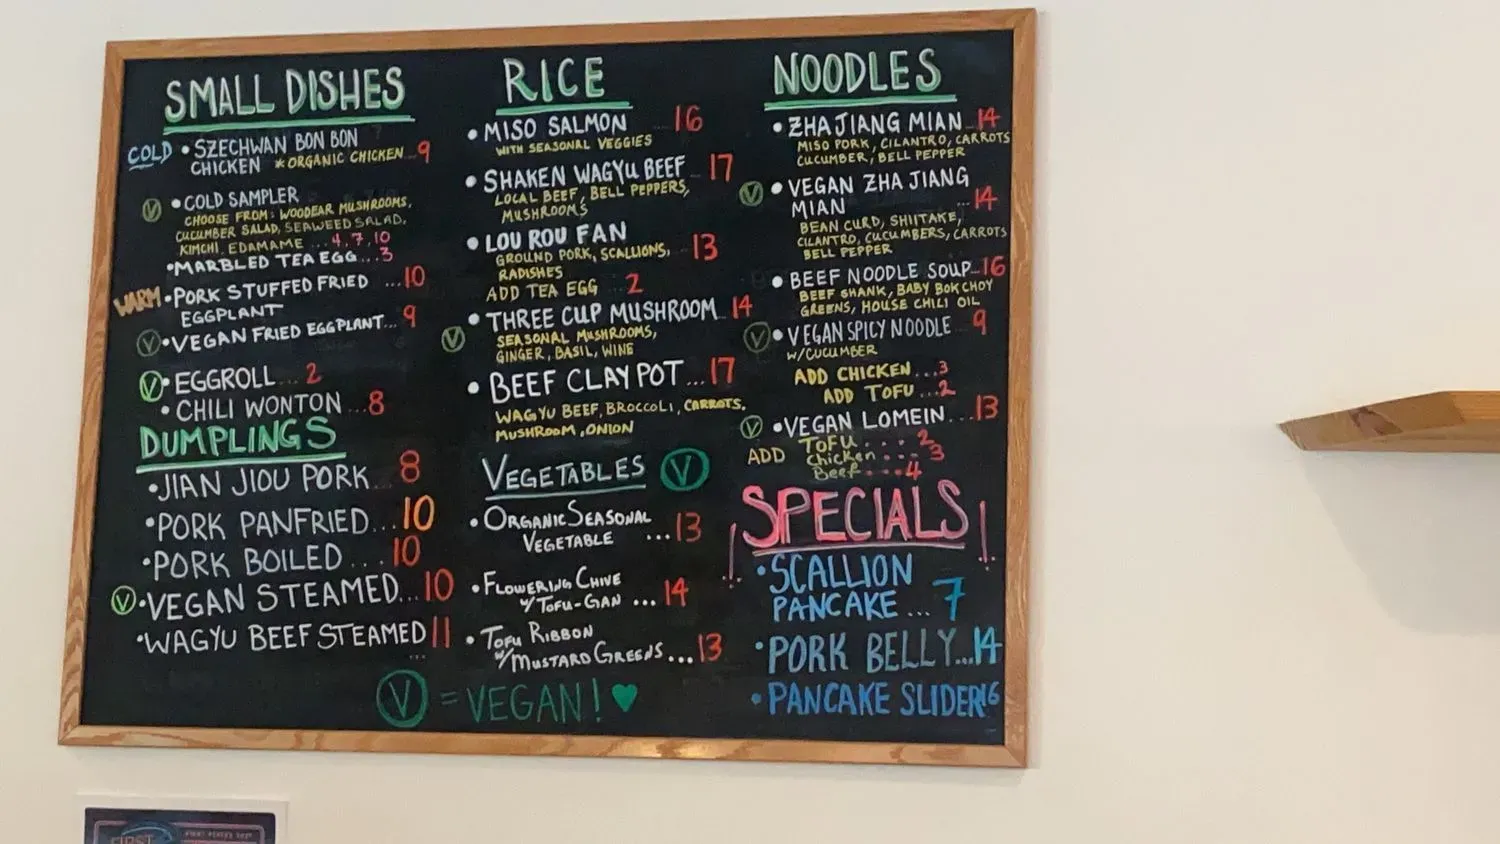 SMALL DISHES
COLD • SZECHWAN BON BON
CHICKEN *ORGANIC CHICKEN..9
V • COLD SAMPLER
CHOOSE FROM: WOODEAR MUSHROOMS,
CUCUMBER SALAD, SEAWEED SALAD,
KIMCHI, EDAMAME ...4,7,10
• MARBLED TEA EGG...3
WARM • PORK STUFFED FRIED ...10
EGGPLANT
V • VEGAN FRIED EGGPLANT...9
V • EGGROLL...2
• CHILI WONTON...8
DUMPLINGS
• JIAN JIOU PORK...8
• PORK PANFRIED...10
• PORK BOILED...10
V • VEGAN STEAMED...10
• WAGYU BEEF STEAMED 11
...
RICE
• MISO SALMON ...16
WITH SEASONAL VEGGIES
• SHAKEN WAGYU BEEF...17
LOCAL BEEF, BELL PEPPERS,
MUSHROOMS
• LOU ROU FAN
GROUND PORK, SCALLIONS, 13
RADISHES
ADD TEA EGG ...2
• THREE CUP MUSHROOM...14
V SEASONAL MUSHROOMS,
GINGER, BASIL, WINE
• BEEF CLAY POT...17
WAGYU BEEF, BROCCOLI, CARROTS,
MUSHROOM, ONION
VEGETABLES V
• ORGANIC SEASONAL
VEGETABLE ...13
• FLOWERING CHIVE
W/TOFU-GAN ...14
• TOFU RIBBON
W/MUSTARD GREENS...13
V = VEGAN! ♥
NOODLES
• ZHA JIANG MIAN...14
MISO PORK, CILANTRO, CARROTS
CUCUMBER, BELL PEPPER
V • VEGAN ZHA JIANG
MIAN ...14
BEAN CURD, SHIITAKE,
CILANTRO, CUCUMBERS, CARROTS
BELL PEPPER
• BEEF NOODLE SOUP...16
BEEF SHANK, BABY BOK CHOY
GREENS, HOUSE CHILI OIL
V • VEGAN SPICY NOODLE 9
W/CUCUMBER
ADD CHICKEN...3
ADD TOFU...2
V • VEGAN LOMEIN...13
ADD TOFU....2
Chicken...3
Beef...4
! SPECIALS !
• SCALLION
PANCAKE...7
• PORK BELLY...14
• PANCAKE SLIDER 16
FIRST